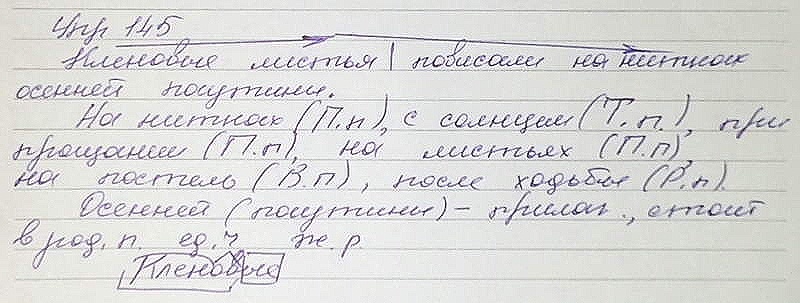 Упр 145
Кленовые листья | повисали на нитках
осенней паутины.
На нитках (П.п), с солнцем (Т.п.), при
прощании (П.п), на листьях (П.п),
на постель (В.п), после ходьбы (Р.п).
Осенней (паутины) – прилаг., стоит
в род. п. ед. ч. ж. р.
Кленовые